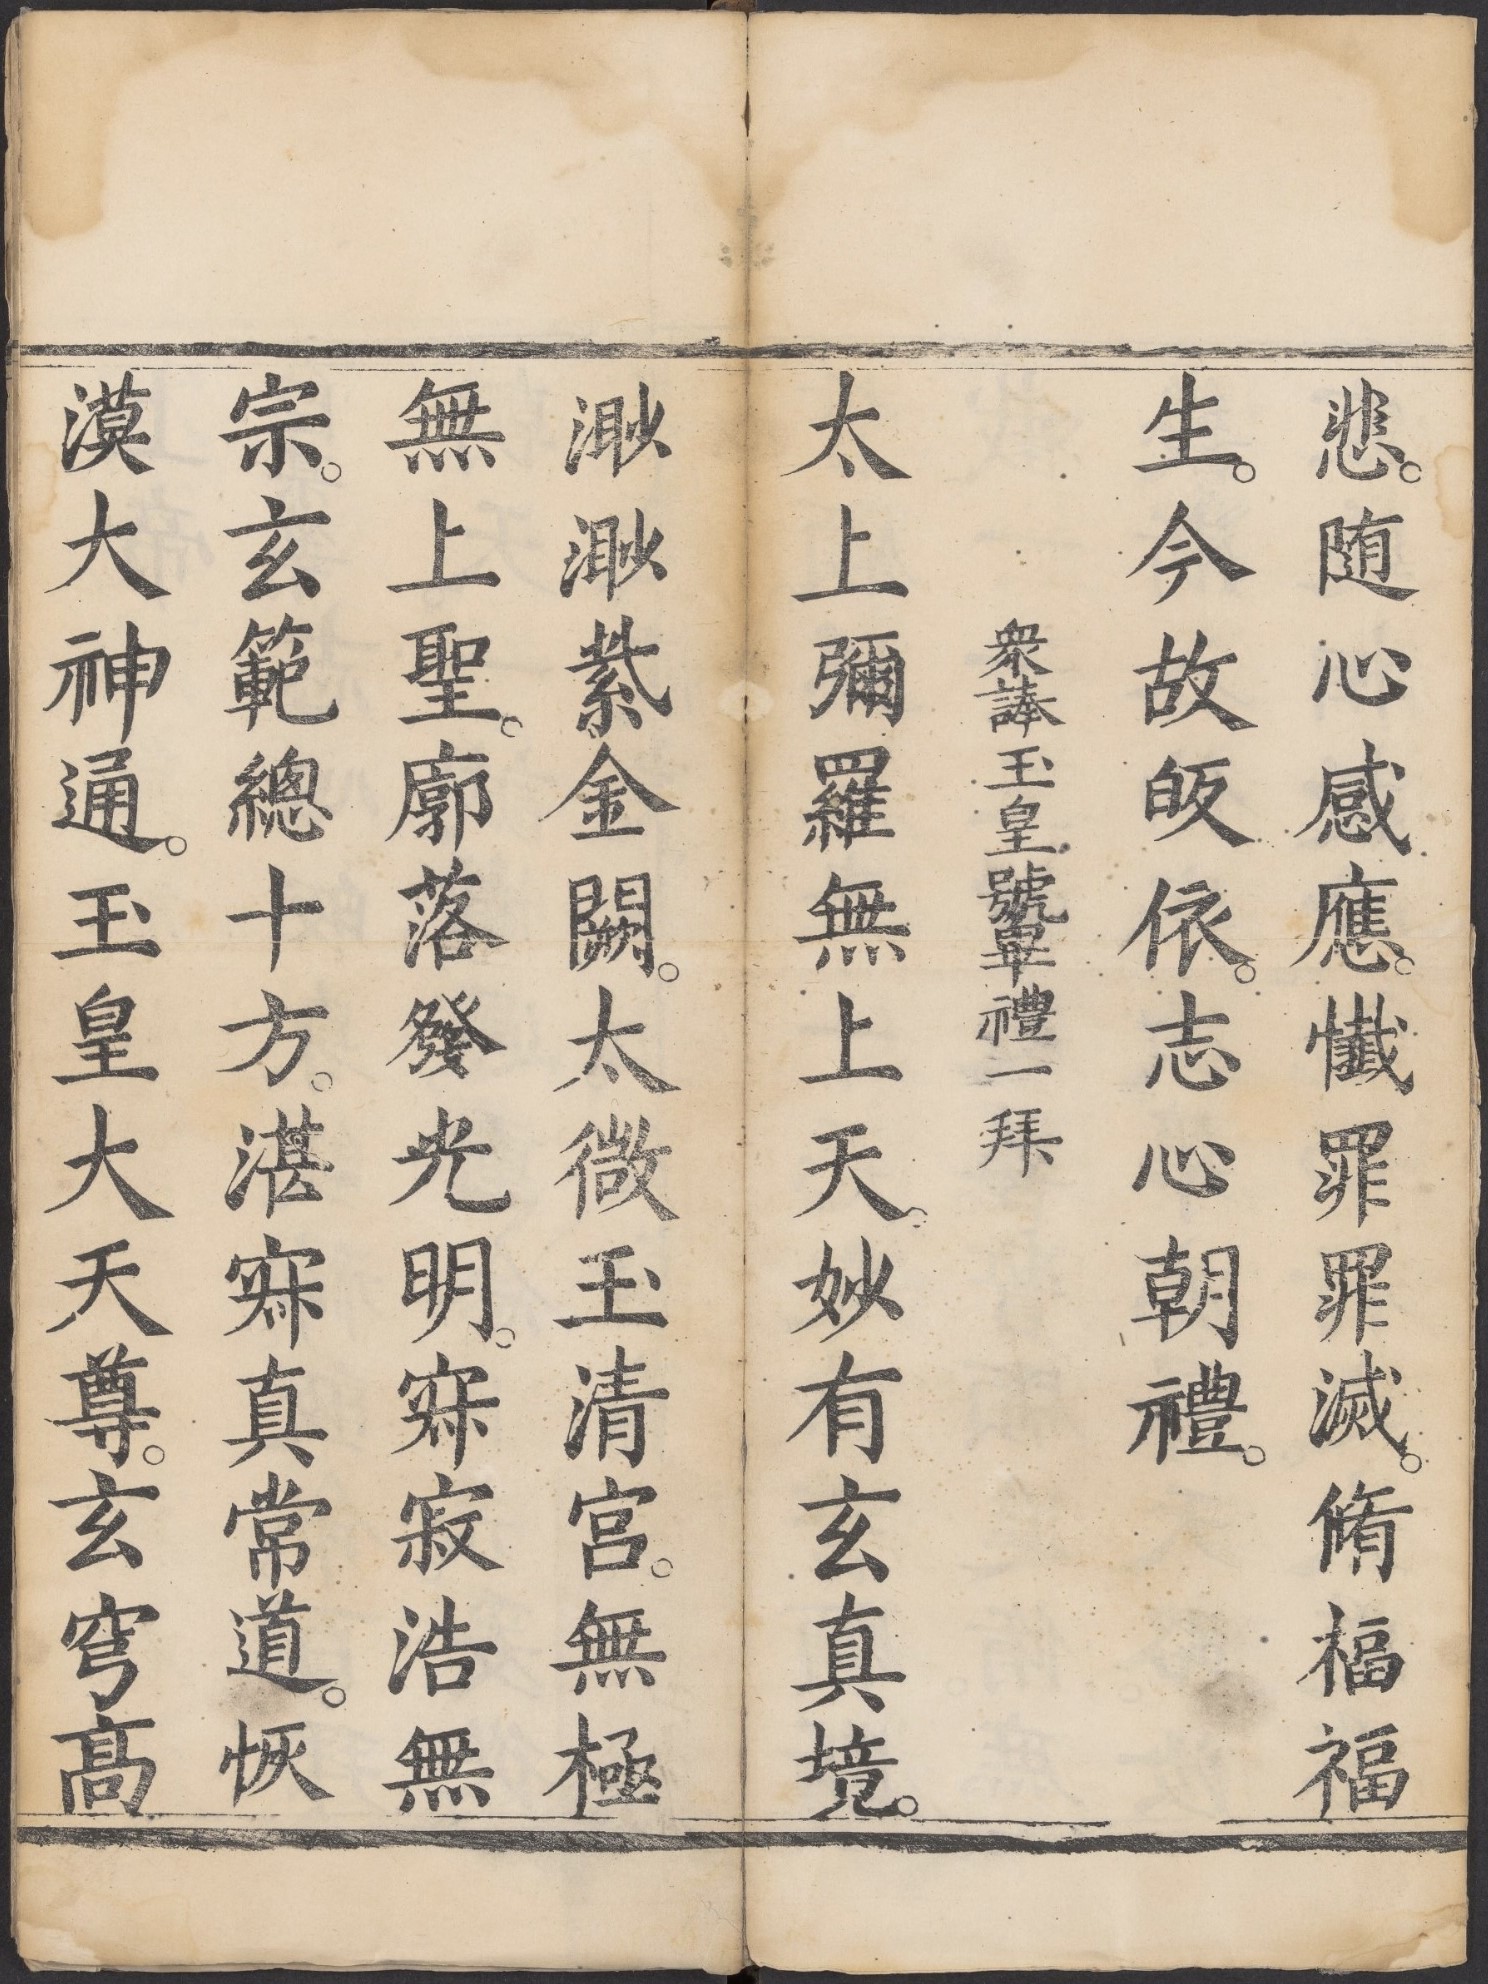 悲。随心感應。懺罪罪滅。脩福福
生。今故皈依。志心朝禮。
衆諷玉皇號畢禮一拜
太上彌羅無上天。妙有玄真境。
渺渺紫金闕。太微玉清宮。無極
無上聖。廓落發光明。寂寂浩無
宗。玄範總十方。湛寂真常道。恢
漠大神通。玉皇大天尊。玄穹高